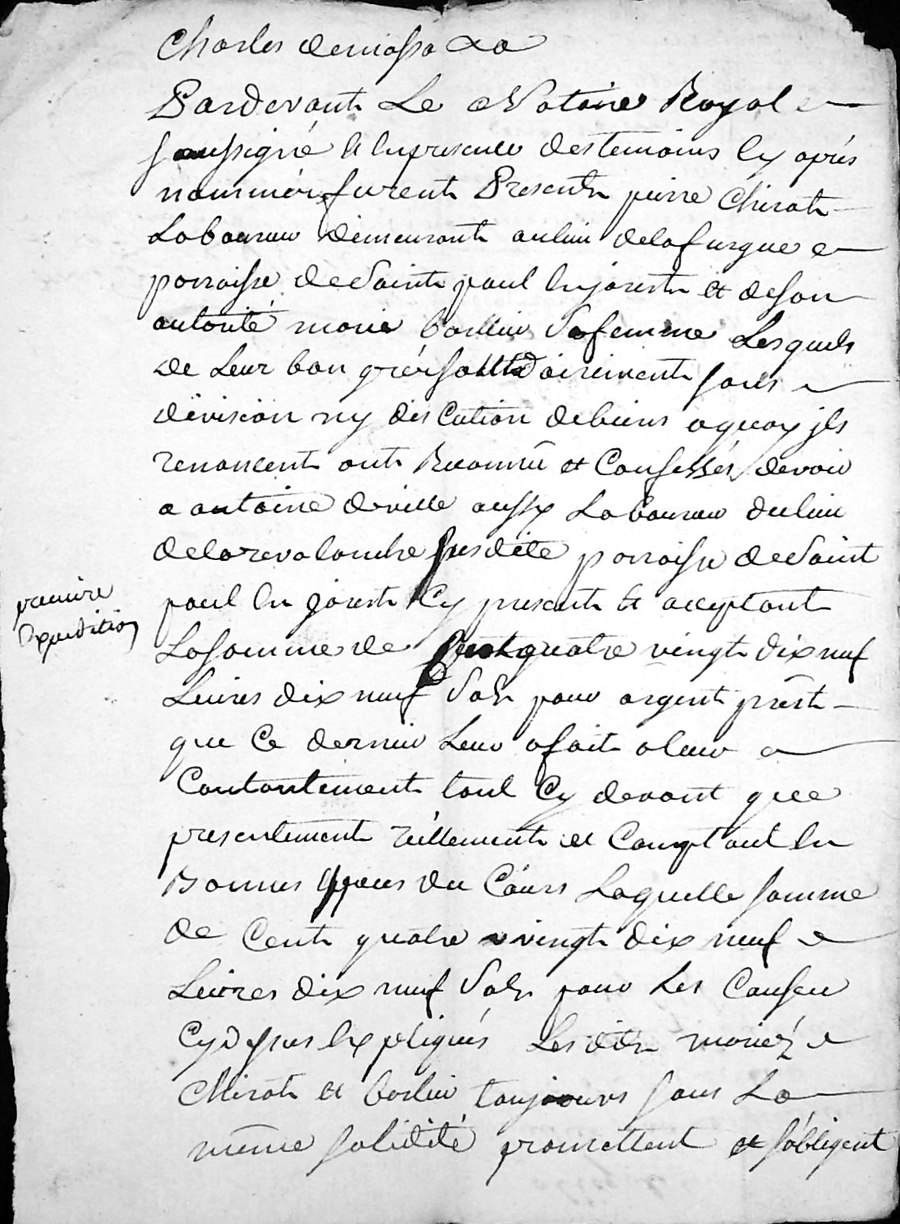 Charles demassa
Pardevant Le Notaire Royal
soussigné et en presence des temoins cy après
nommés furent Presents pierre Chirat
Laboureur demeurant au lieu de la furgue
parroisse de Saint paul en jarest et de son
autorité marie Sa femme Lesquels
de Leur bon gré solidairement sans
division ny discution de biens a quoy jls
renoncent ont Reconnu et Confessés devoir
a antoine deville aussy Laboureur du lieu
de la revalandre susdite parroisse de Saint
paul en jarest Cy present et acceptant
premiere
Expedition
La somme de Cent quatre vingt dix neuf
Livres dix neuf Sols pour argent prêst
que Ce dernier Leur a fait a leur
Contantement tant Cy devant que
presentement réellement et Comptant en
Bonnes Especes du Cours Laquelle somme
de Cent quatre vingt dix neuf
Livres dix neuf Sols pour Les Causes
Cy dessus Expliqués Les dits mariéz
Chirat et toujours sous La
même solidité promettent et s'obligent